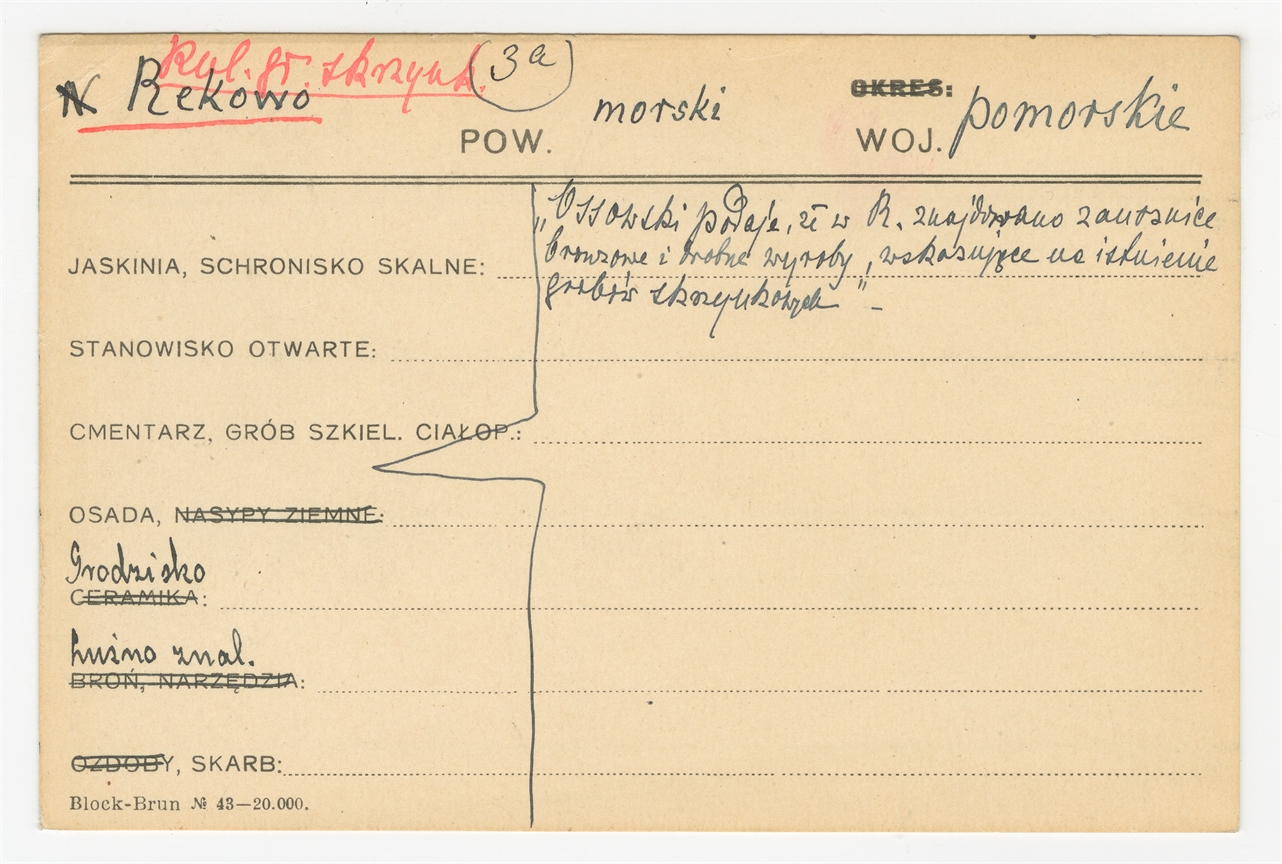 Kul. gr. skrzynk. (3a)
Rekowo
POW. morski
OKRES:
WOJ. pomorskie
"Ossowski podaje, że w R. znajdowano zausznice
bronzowe i drobne wyroby, wskazujące na istnienie
grobów skrzynkowych" –
JASKINIA, SCHRONISKO SKALNE:
STANOWISKO OTWARTE:
CMENTARZ, GRÓB SZKIEL. CIAŁOP.:
OSADA, NASYPY ZIEMNE:
Grodzisko
CERAMIKA:
Luźno znal.
BROŃ, NARZĘDZIA:
OZDOBY, SKARB:
Block-Brun № 43—20.000.